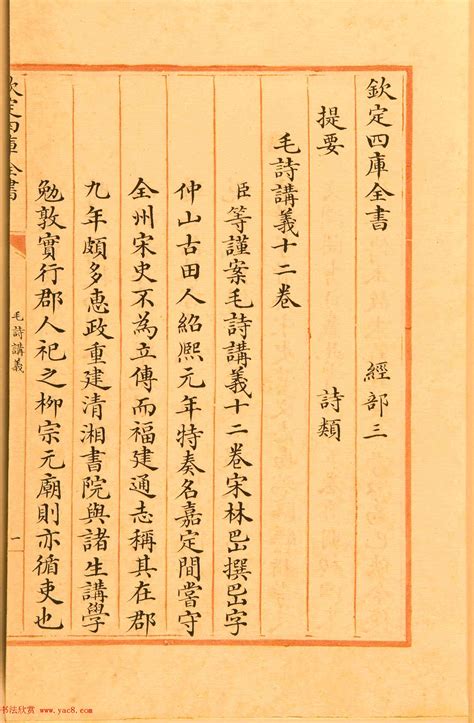 欽定四庫全書 經部三
提要 詩類
毛詩講義十二卷
臣等謹案毛詩講義十二卷宋林岊撰岊字
仲山古田人紹熙元年特奏名嘉定間嘗守
全州宋史不為立傳而福建通志稱其在郡
九年頗多惠政重建清湘書院與諸生講學
勉敦實行郡人祀之柳宗元廟則亦循吏也
欽定四庫全書
毛詩講義
一
书法欣赏 www.yac8.com